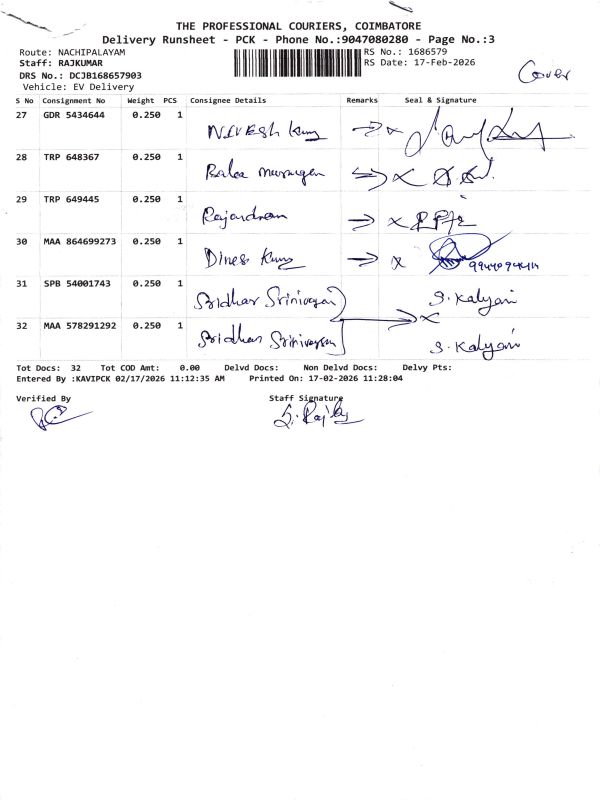 THE PROFESSIONAL COURIERS, COIMBATORE
Delivery Runsheet - PCK - Phone No.:9047080280 - Page No.:3
Route: NACHIPALAYAM
RS No.: 1686579
Staff: RAJKUMAR
RS Date: 17-Feb-2026
Cover
DRS No.: DCJB168657903
Vehicle: EV Delivery
S No Consignment No Weight PCS Consignee Details Remarks Seal & Signature
27 GDR 5434644 0.250 1 Nivesh Kumg
28 TRP 648367 0.250 1 Balaa murugan
29 TRP 649445 0.250 1 Rajandran
30 MAA 864699273 0.250 1 Dines Kumg
31 SPB 54001743 0.250 1 Sridhar Srinivasan S. Kalyani
32 MAA 578291292 0.250 1 Sridhar Srinivasan S. Kalyani
Tot Docs: 32 Tot COD Amt: 0.00 Delvd Docs: Non Delvd Docs: Delvy Pts:
Entered By :KAVIPCK 02/17/2026 11:12:35 AM Printed On: 17-02-2026 11:28:04
Verified By Staff Signature